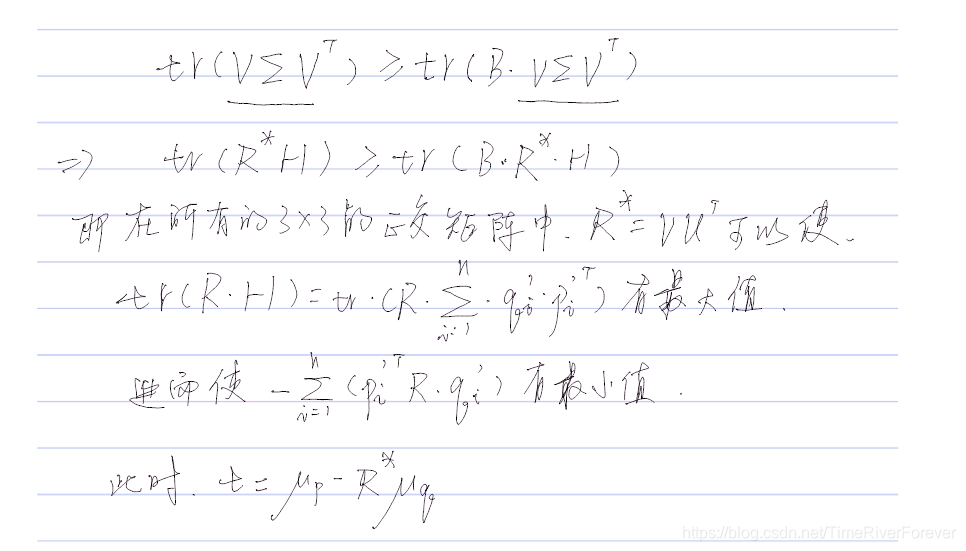 tr(VΣV^T) ≥ tr(B·VΣV^T)
⇒ tr(R*H) ≥ tr(B·R*·H)
即在所有的3×3的正交矩阵中. R* = VU^T 可以使.
tr(R·H) = tr·(R·Σ_{i=1}^{n}·q_i'·p_i'^T) 有最大值.
进而使 -Σ_{i=1}^{n}(p_i'^T R·q_i') 有最小值.
此时. t = μ_p - R*μ_q
https://blog.csdn.net/TimeRiverForever